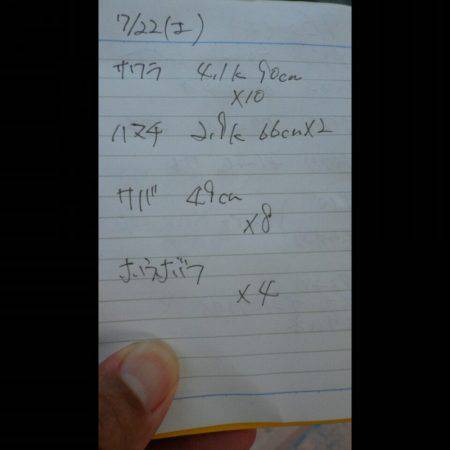 7/22(土)
サワラ 4.1k 90cm
×10
ハマチ 2.9k 66cm×2
サバ 49cm
×8
ホウボウ
×4